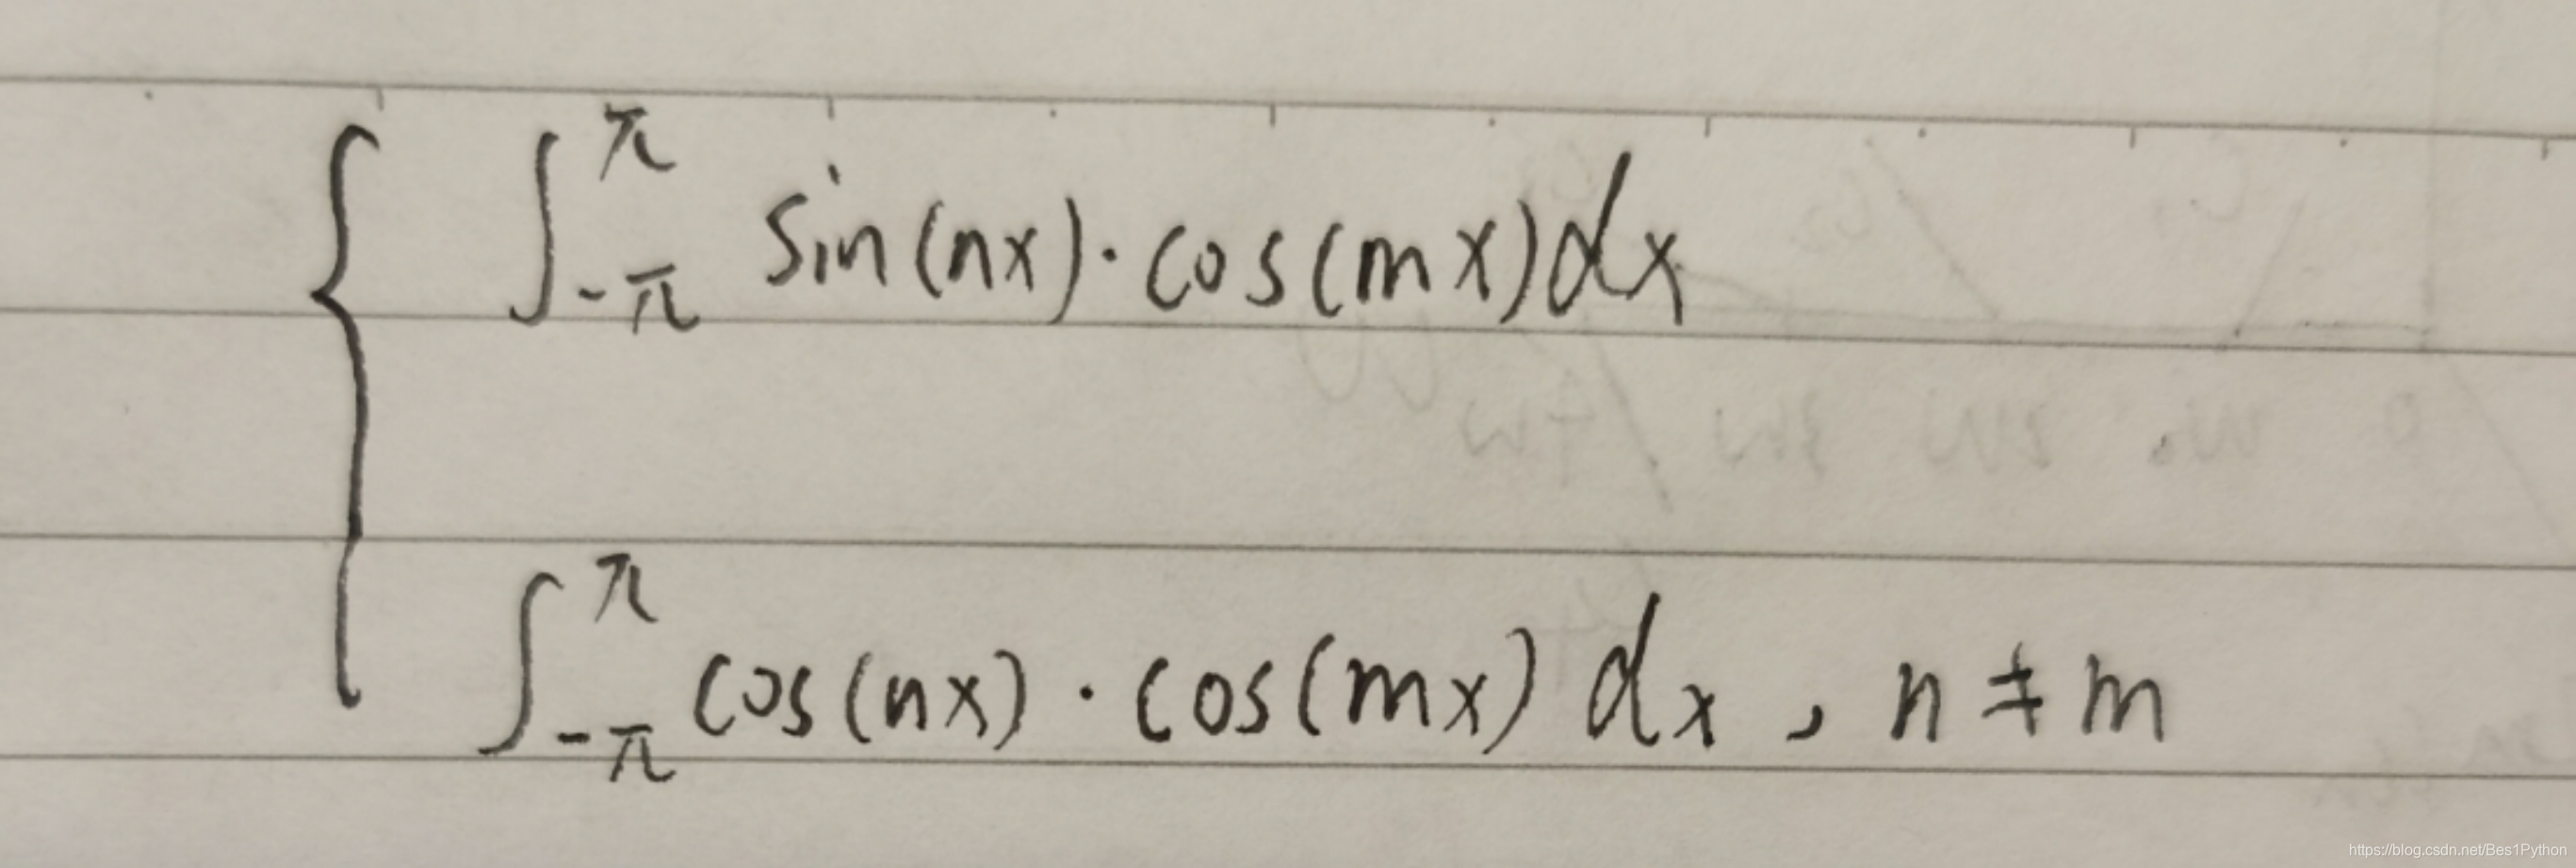 { ∫_{-π}^{π} sin(nx)·cos(mx)dx
∫_{-π}^{π} cos(nx)·cos(mx) dx , n ≠ m
https://blog.csdn.net/Bes1Python